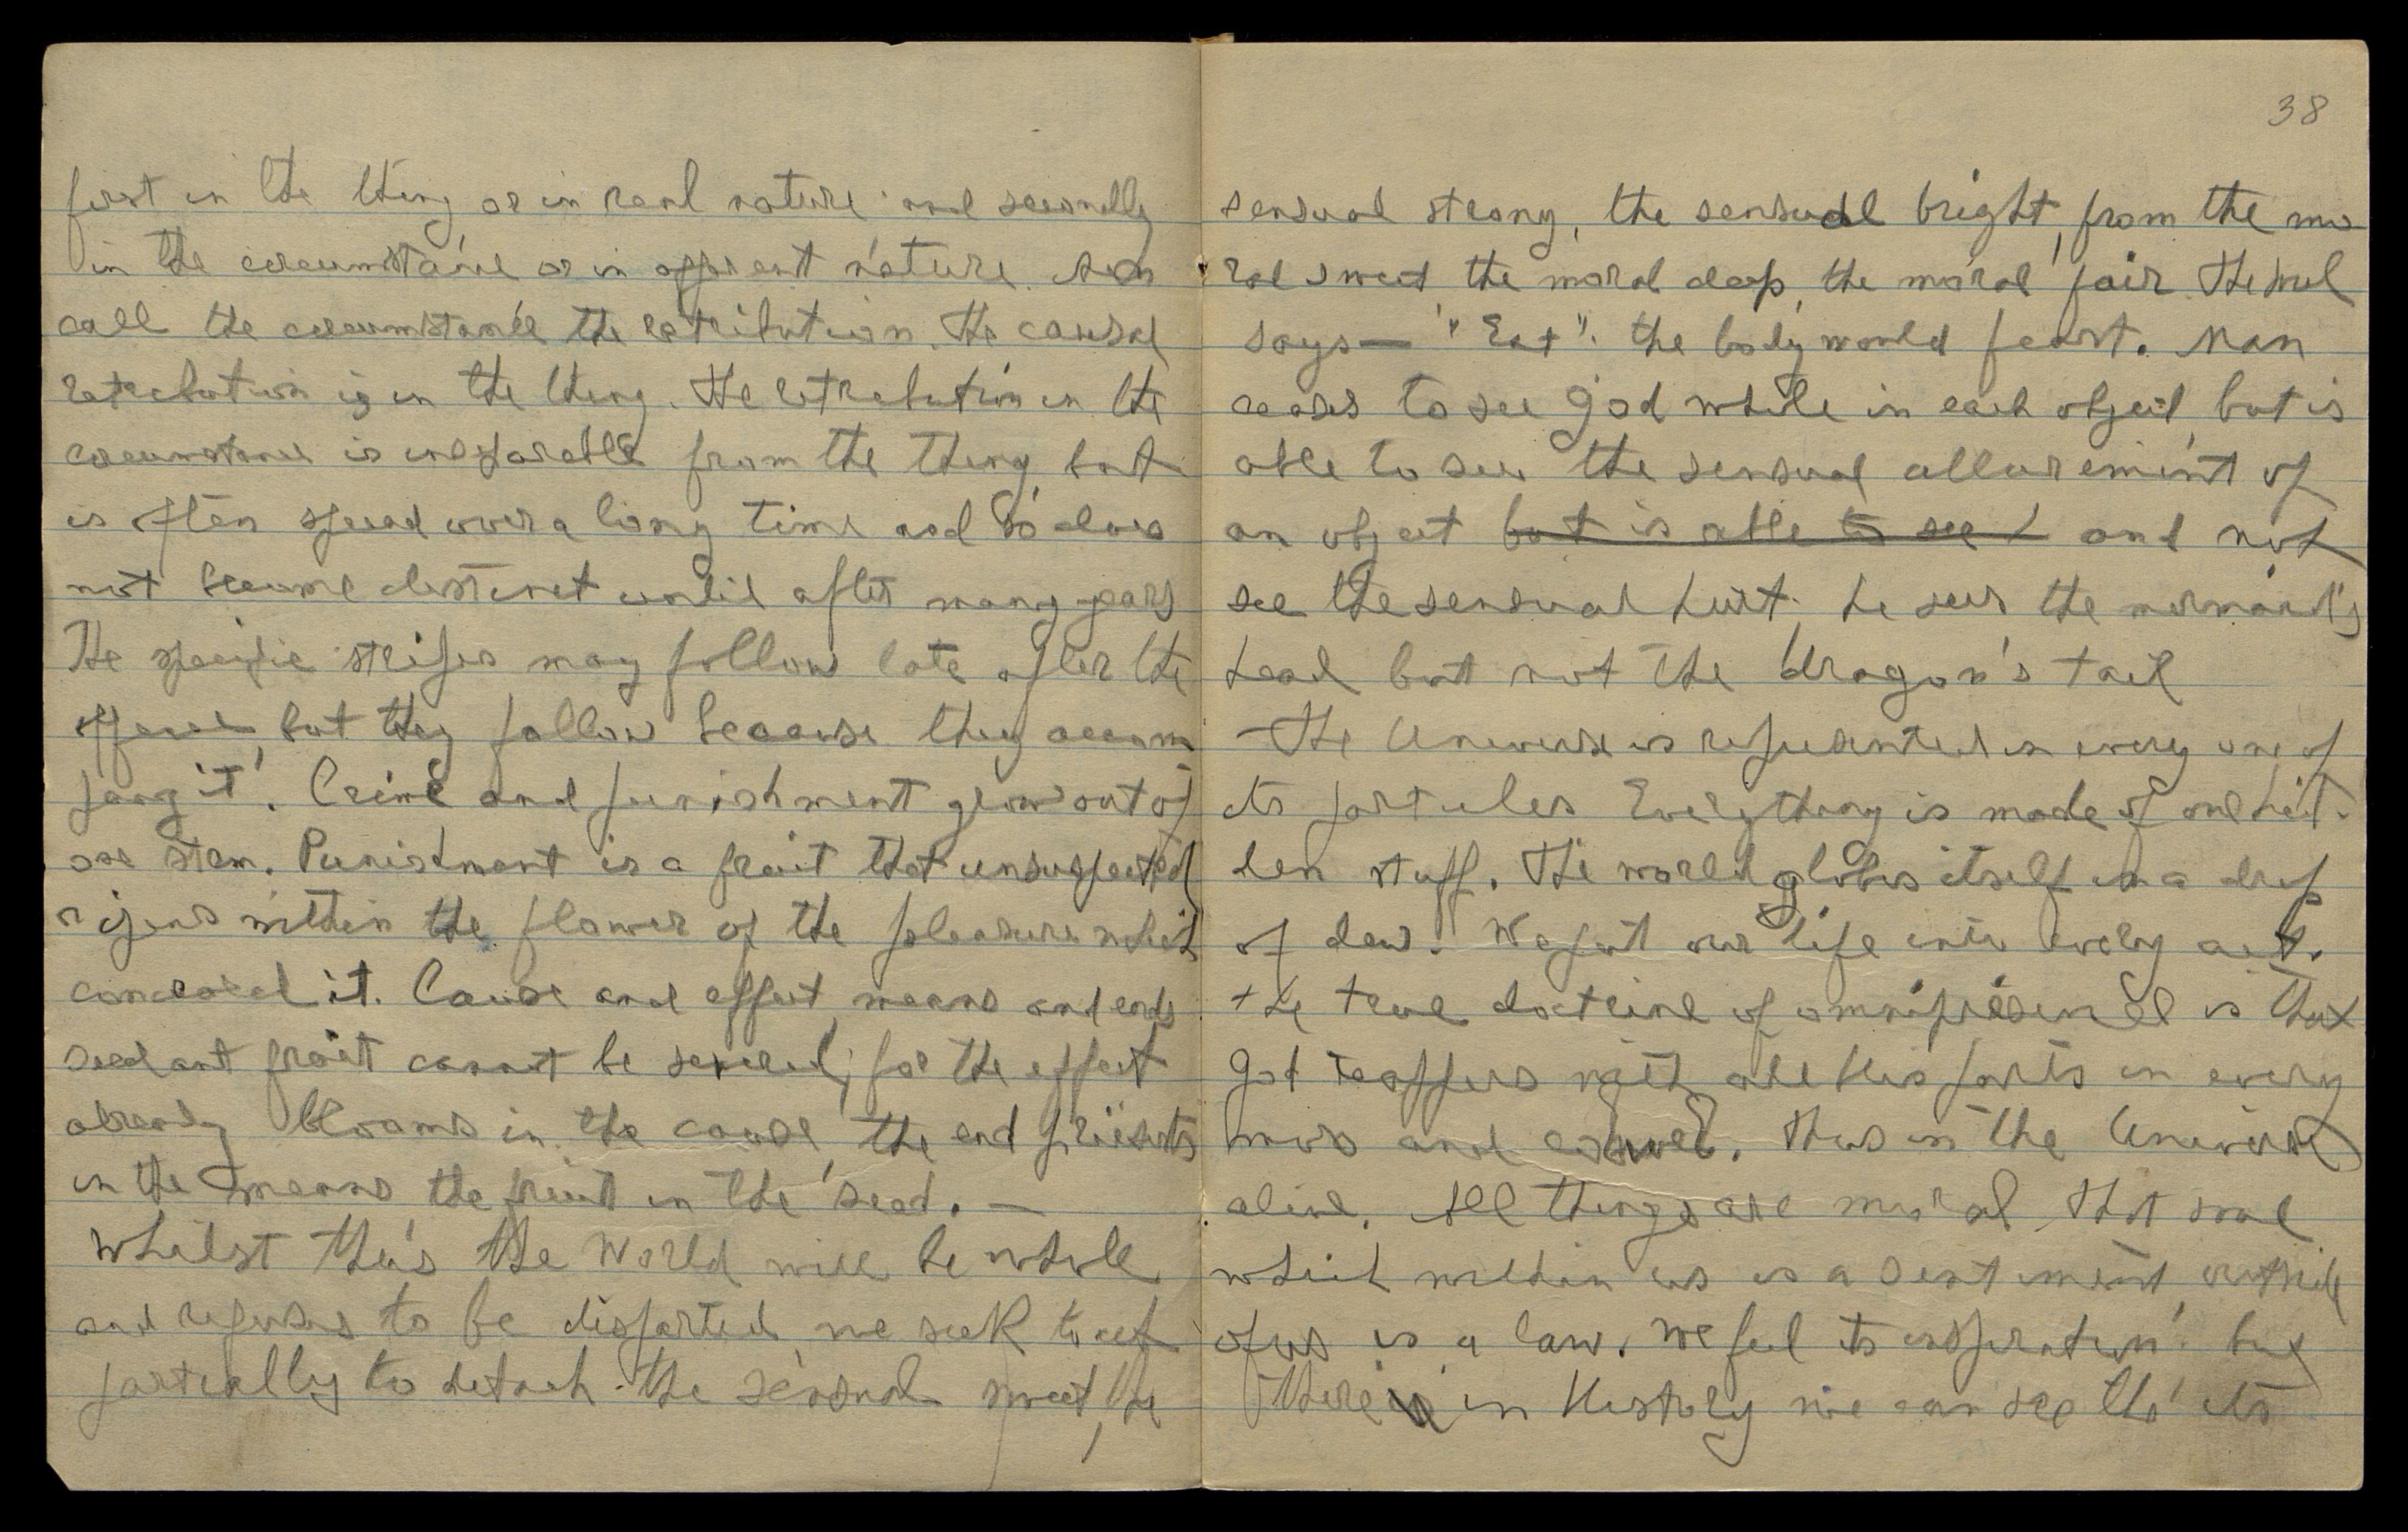 first in the thing or in real nature and secondly
in the circumstance or in apparent nature. Men
call the circumstance the retribution. The causal
retribution is in the thing. The retribution in the
circumstance is inseparable from the thing, but
is often spread over a long time and so does
not become distinct until after many years
The specific stripes may follow late after the
offence, but they follow because they accom
pany it. Crime and punishment grow out of
one stem. Punishment is a fruit that unsuspected
ripens within the flower of the pleasure which
concealed it. Cause and effect, means and ends
seed and fruit cannot be severed; for the effect
already blooms in the cause, the end preexists
in the means the fruit in the seed. —
Whilst thus the World will be whole
and refuses to be disparted, we seek to act
partially to detach the sensual sweet, the
38
sensual strong, the sensual bright, from the mo
ral sweet, the moral deep, the moral fair. The soul
says — "Eat". the body would feast. Man
ceases to see God whole in each object, but is
able to see the sensual allurement of
an object but is able to see t and not
see the sensual hurt. he sees the mermaid's
head but not the dragon's tail
— The Universe is represented in every one of
its particles Everything is made of one hid-
den stuff. The world globes itself in a drop
of dew. We put our life into every act.
the true doctrine of omnipresence is that
God reappears with all His parts in every
moss and cobweb. Thus is the Universe
alive. All things are moral That soul
which within us is a sentiment, outside
of us is a law. We feel its inspiration. but
there in History we can see the its